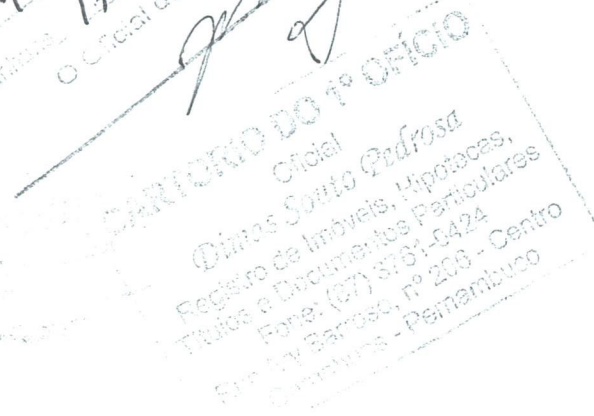 O Oficial d
CARTORIO DO 1º OFÍCIO
Oficial
Dimas Souto Pedrosa
Registro de Imóveis, Hipotecas,
Titulos e Documentos Particulares
Fone: (87) 3761-0424
Barroso, nº 206 - Centro
- Pernambuco